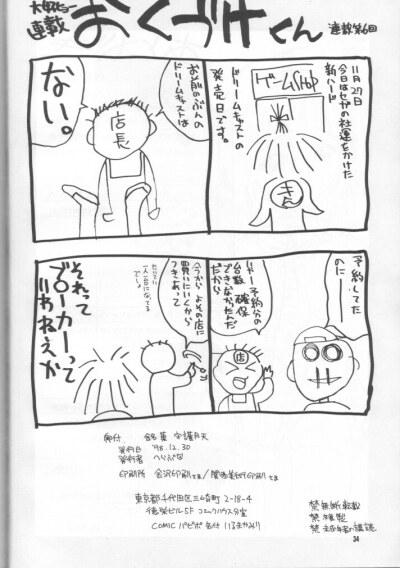 大好ヒョー
連載
おくづけくん
連載第6回
11月27日
今日はセガの社運をかけた
新ハード
ドリームキャストの
発売日です。
ゲームSHOP
きん
お前のぶんの
ドリームキャストは
店長
ない。
予約してた
のにーー
いやー予約分の
台数確保
できなかったんだ
だから
店
今からよその店に
買いにいくから
つきあって
一人一台になってる
でしょ
それって
ブローカーって
いわねえか
発行日 '98.12.30
発行者 へっぷ
印刷所 金沢印刷さま/関西美術印刷さま
東京都千代田区三崎町2-18-4
徳栄ビル5F コミックハウス分室
COMIC パピポ 気付 いるまかみり
禁無断転載
禁複製
34